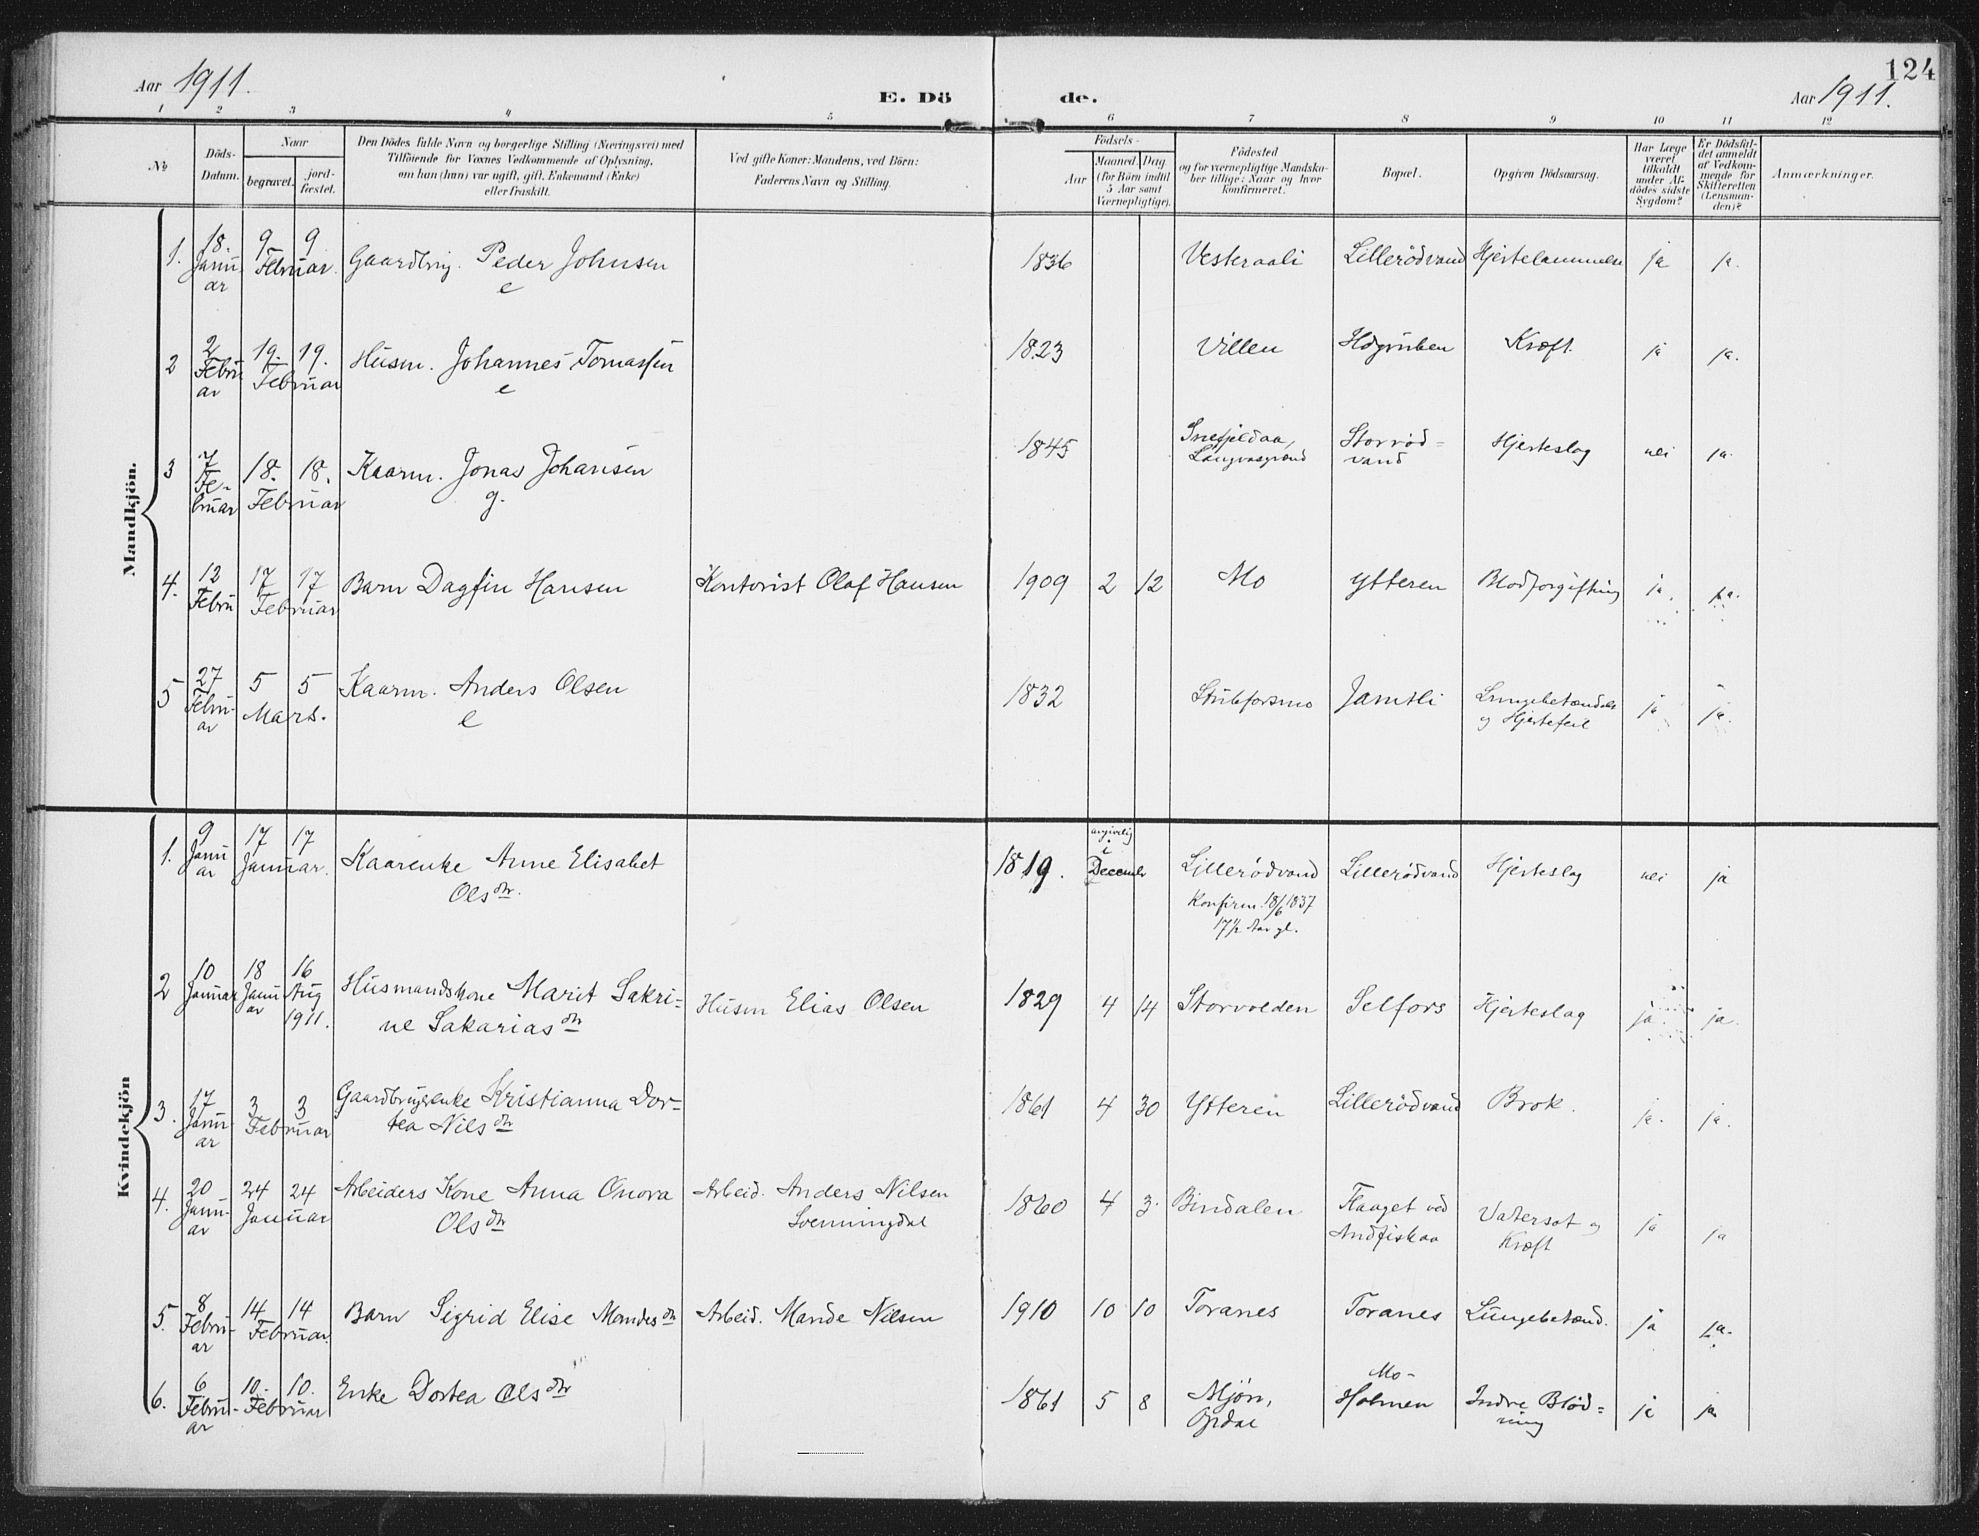 124
Aar 1911.
E. Dö de.
Aar 1911.
1 2 3 4 5 6 7 8 9 10 11 12
No
Döds-Datum.
Naar
begravet.
jord-fæstet.
Den Dödes fulde Navn og borgerlige Stilling (Næringsvei) med
Tilföiende for Voxnes Vedkommende af Oplysning,
om han (hun) var ugift, gift, Enkemand (Enke)
eller fraskilt.
Ved gifte Koner: Mandens, ved Börn:
Faderens Navn og Stilling.
Födsels-
Aar
Maaned. Dag.
(for Börn indtil
5 Aar samt
Værnepligtige).
Födested
og for værnepligtige Mandska-
ber tillige: Naar og hvor
konfirmeret.
Bopæl.
Opgiven Dödsaarsag.
Har Læge
været
tilkaldt
under Af-
dödes sidste
Sygdom?
Er Dödsfal-
det anmeldt
af Vedkom-
mende for
Skifteretten
(Lensman-
den)?
Anmærkninger.
Mandkjön.
1. 18. Januar 9 9 Februar. Gaardbrug. Peder Johnsen e 1836 Vesteraali Lillerödvand Hjertelammelse ja ja.
2 2 Februar 19. 19. Februar Husm. Johannes Tomassen e 1823 Villen Högruben Kræft. ja ja.
3 7 Fe-bruar 18. 18. Februar Kaarm. Jonas Johansen g. 1845 Snefjeldaa, Storröd=vand Hjerteslag nei ja.
4. 12 Febru 17 17 Februar Barn Dagfin Hansen Kontorist Olaf Hansen 1909 2 12 Mo Ytteren Blodforgiftning ja. ja.
5 27 Februar 5 5 Mars. Kaarm. Anders Olsen e 1832 Stubforsmo Jamtli Lungebetændelse og Hjertefeil ja ja.
Kvindekjön
1. 9 Januar 17 17 Januar. Kaarenke Anne Elisabet Olsdtr. 1819. angivelig i December Lillerödvand Konfirm. 18/6 1837 17½ Aar gl. Lillerödvand Hjerteslag nei ja
2 10 Januar 18 Januar 16 Aug 1911. Husmandskone Marit Sakri=ne Sakariasdtr Husm Elias Olsen 1829 4 14 Storvolden Selfors Hjerteslag ja ja.
3. 17 Januar 3 3 Februar Gaardbrugerenke Kristianna Dor=tea Nilsdtr 1861 4 30 Ytteren Lillerödvand Brok. ja. ja.
4. 20 Januar 24 24 Januar Arbeiders Kone Anna Onora Olsdtr Arbeid. Anders Nilsen Svenningdal 1860 4 3. Bindalen Flaaget ved Andfiskaa Vatersot og Kræft ja ja
5. 8 Februar 14 14 Februar. Barn Sigrid Elise Mandesdtr Arbeid. Mande Nilsen 1910 10 10 Toranes Toranes Lungebetænd. ja ja.
6. 6 Februar 10. 10. Februar Enke Dortea Olsdtr 1861 5 8 Mjön, Opdal Mo-Holmen Indre Blöd=ning ja ja